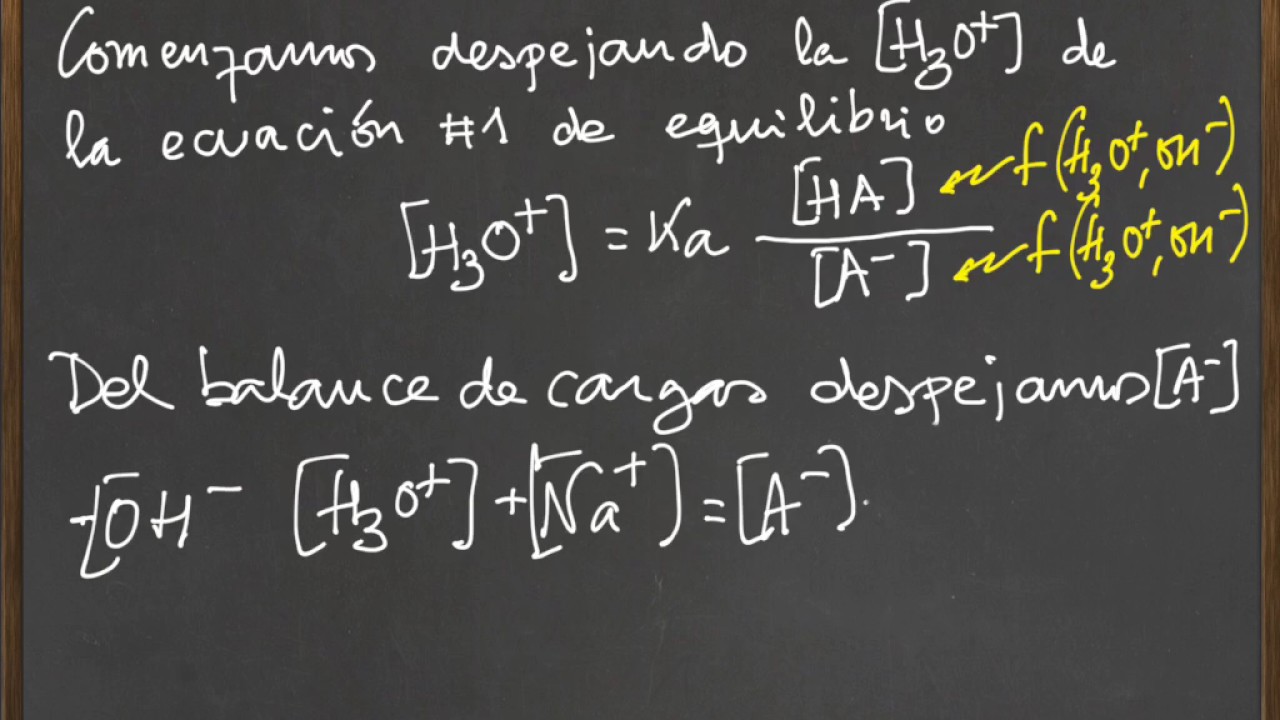 Comenzamos despejando la [H₃O⁺] de
la ecuación #1 de equilibrio
[H₃O⁺] = Ka [HA] / [A⁻]
f(H₃O⁺, OH⁻)
f(H₃O⁺, OH⁻)
Del balance de cargas despejamos [A⁻]
-[OH⁻ [H₃O⁺] + [Na⁺] = [A⁻].